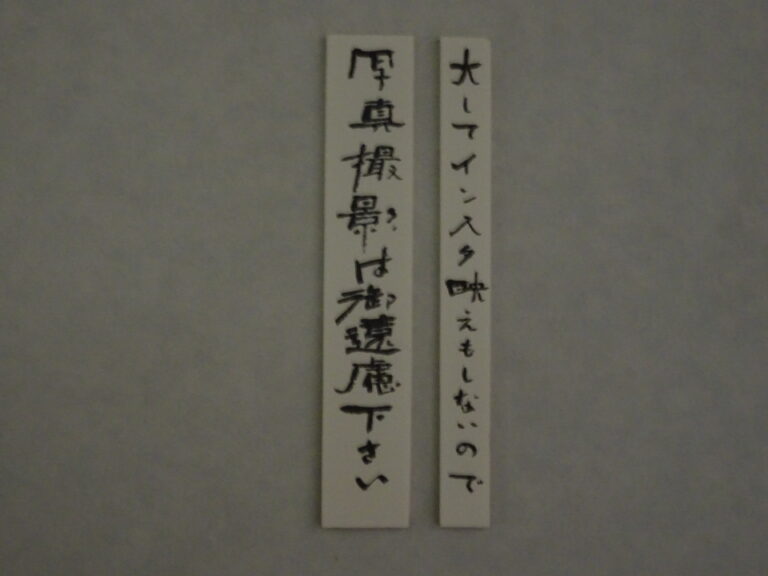 大してインスタ映えもしないので
写真撮影は御遠慮下さい